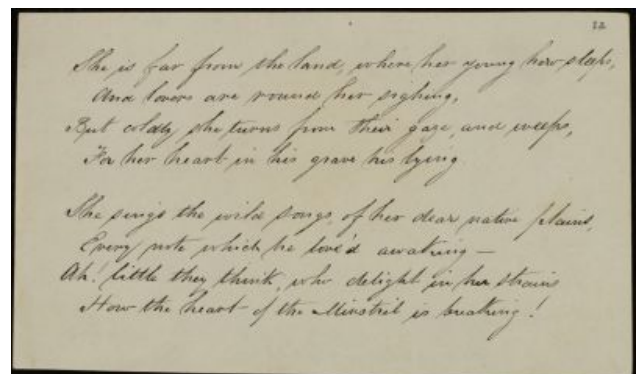 22
She is far from the land, where her young hero sleeps,
And lovers are round her sighing,
But coldly she turns from their gaze, and weeps,
For her heart in his grave his lying.
She sings the wild songs, of her dear native plains,
Every note which he lov'd awaking –
Ah! little they think, who delight in her strains
How the heart of the Minstril is breaking!